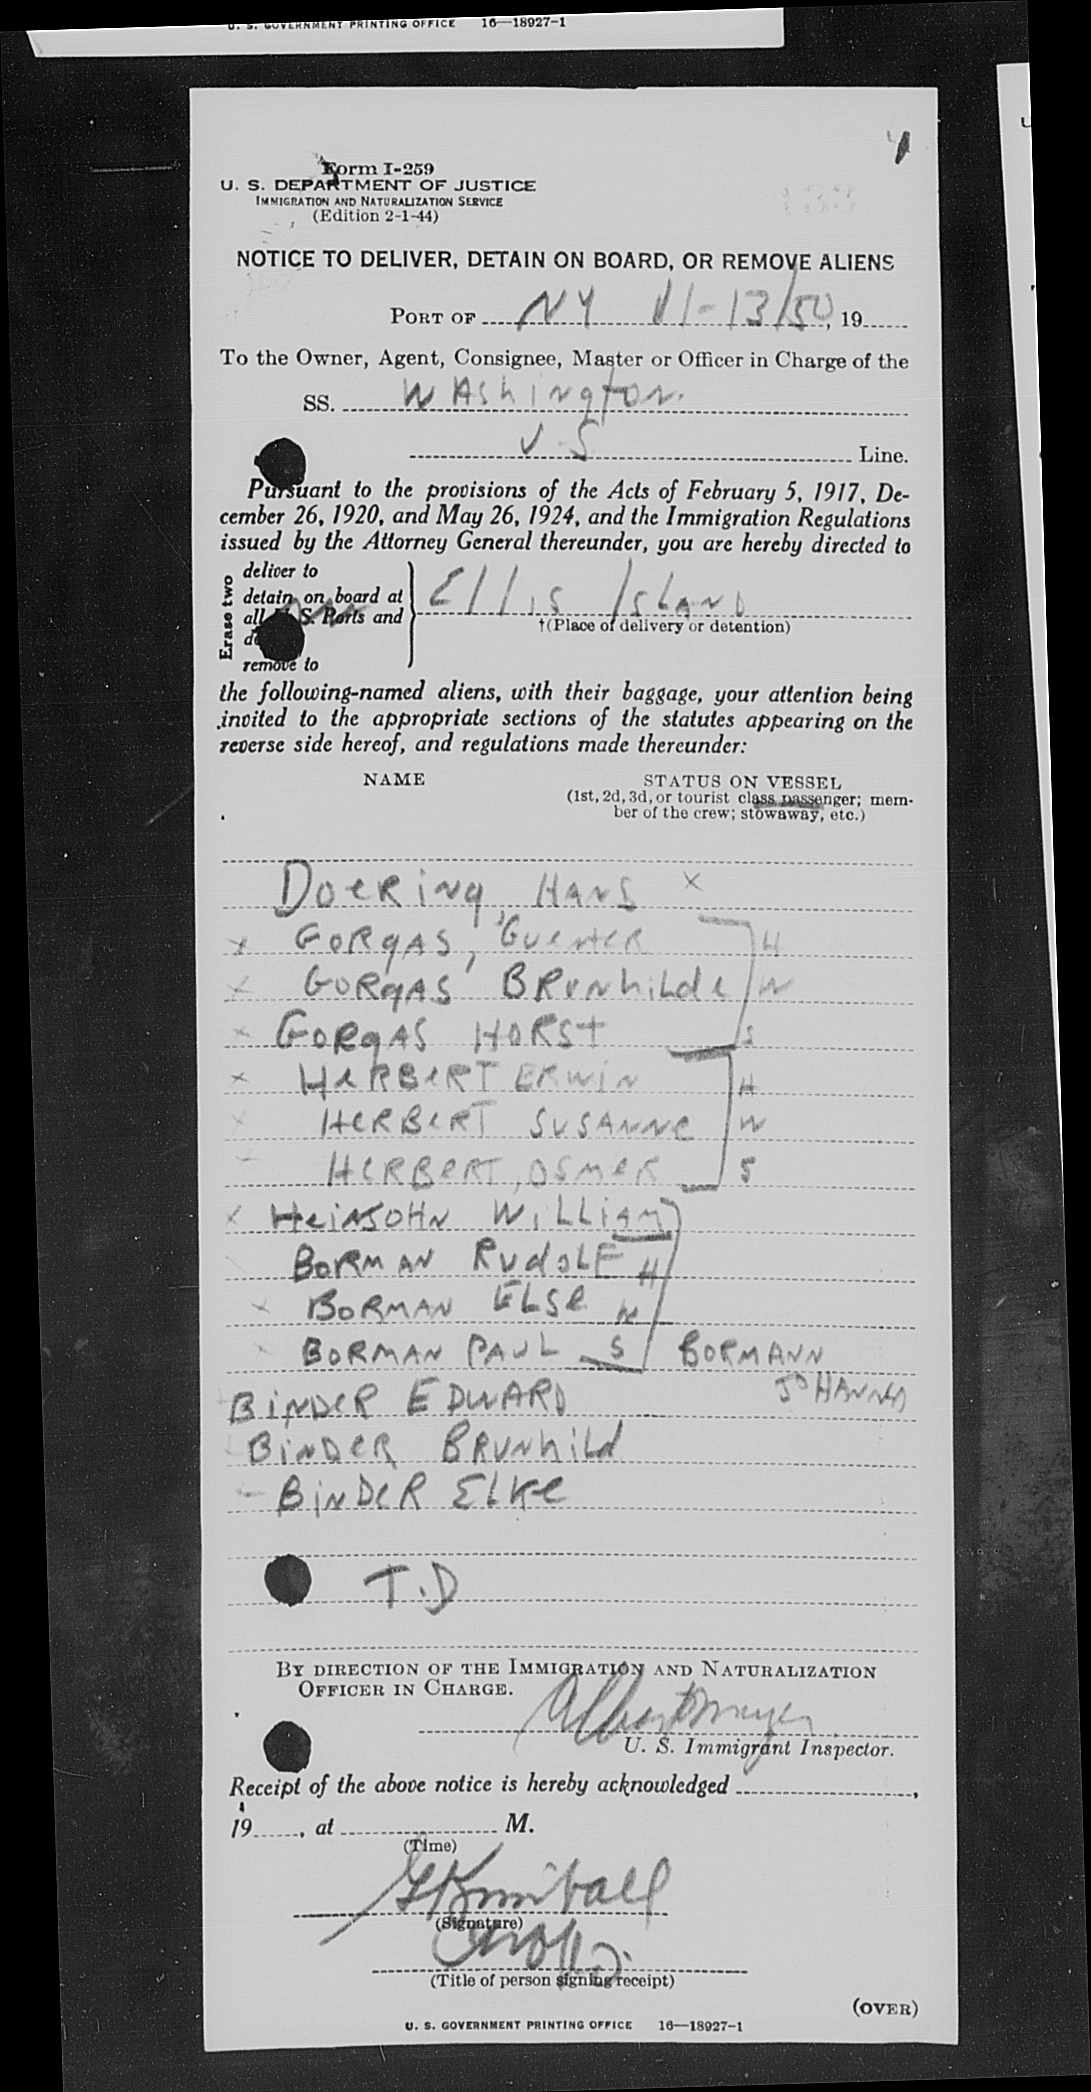 U. S. GOVERNMENT PRINTING OFFICE 16—18927-1
Form I-259
U. S. DEPARTMENT OF JUSTICE
IMMIGRATION AND NATURALIZATION SERVICE
(Edition 2-1-44)
NOTICE TO DELIVER, DETAIN ON BOARD, OR REMOVE ALIENS
PORT OF NY 11-13/50, 19
To the Owner, Agent, Consignee, Master or Officer in Charge of the
SS. WAShington.
U-S Line.
Pursuant to the provisions of the Acts of February 5, 1917, De-
cember 26, 1920, and May 26, 1924, and the Immigration Regulations
issued by the Attorney General thereunder, you are hereby directed to
Erase two
deliver to
detain on board at
all U. S. Ports and
remove to
Ellis Island
†(Place of delivery or detention)
the following-named aliens, with their baggage, your attention being
invited to the appropriate sections of the statutes appearing on the
reverse side hereof, and regulations made thereunder:
NAME STATUS ON VESSEL
(1st, 2d, 3d, or tourist class passenger; mem-
ber of the crew; stowaway, etc.)
DoeRiNg, HANS x
x GORgAS, GuenteR H
x GORgAS BRUNhiLde W
x GORgAS HORSt S
x HeRBeRT ERWIN H
x HeRBeRT SUSANNe W
HeRBeRT, OSMeR S
x HeiNSOHN WiLLiAM
BORMAN RUdOLF H
x BORMAN ELSe W
x BORMAN PAUL S BORMANN
JOHANNA
BiNDeR EDWARD
BiNDeR BRUNhiLd
- BiNDeR ELKe
T.D
BY DIRECTION OF THE IMMIGRATION AND NATURALIZATION
OFFICER IN CHARGE.
Albert Meyer
U. S. Immigrant Inspector.
Receipt of the above notice is hereby acknowledged ,
19 , at M.
(Time)
G Kimball
(Signature)
(Title of person signing receipt)
(OVER)
U. S. GOVERNMENT PRINTING OFFICE 16—18927-1